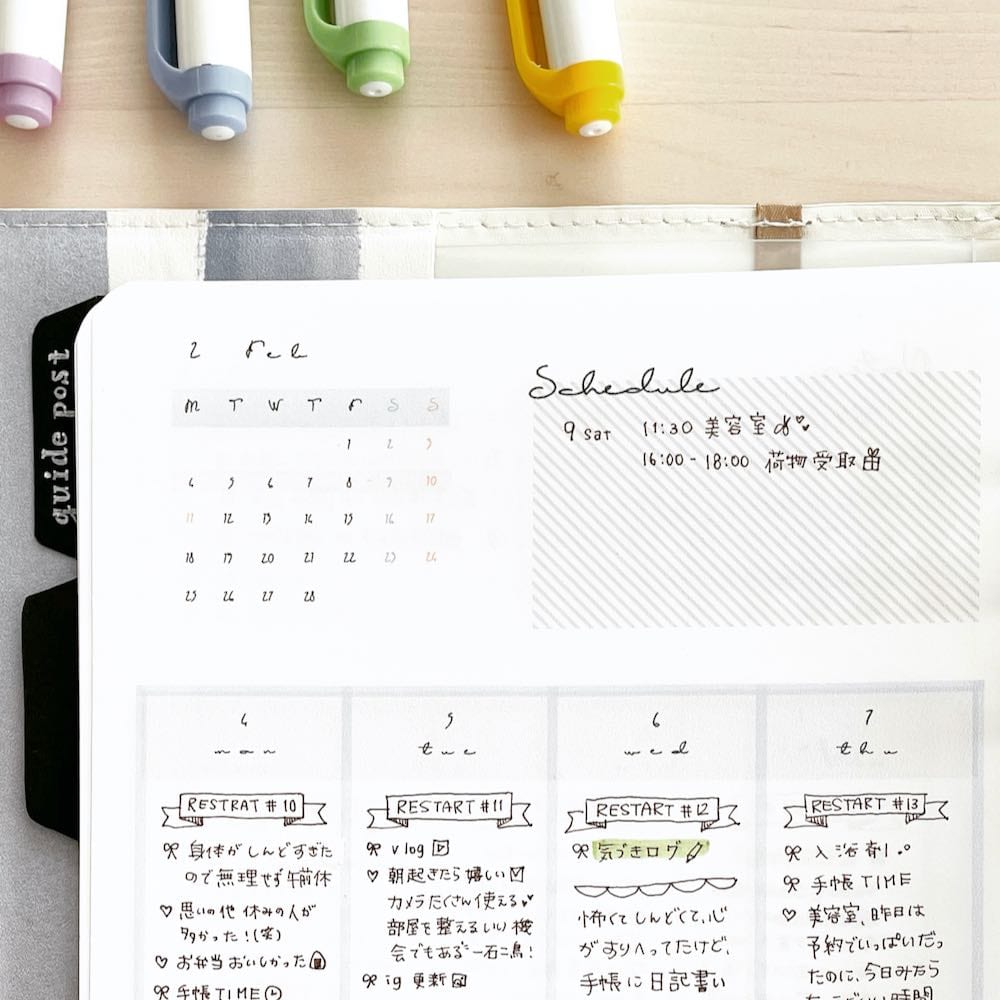 guide post
2 Feb
M T W T F S S
1 2 3
4 5 6 7 8 9 10
11 12 13 14 15 16 17
18 19 20 21 22 23 24
25 26 27 28
Schedule
9 sat 11:30 美容室
16:00-18:00 荷物受取
4
mon
RESTRAT #10
身体がしんどすぎた
ので無理せず午前休
思いの他 休みの人が
多かった!(笑)
お弁当おいしかった
手帳TIME
5
tue
RESTART #11
vlog
朝起きたら嬉しい
カメラたくさん使える
部屋を整えるいい機
会でもある 一石二鳥!
ig 更新
6
wed
RESTART #12
気づきログ
怖くてしんどくて、心
がすりへってたけど、
手帳に日記書い
7
thu
RESTART #13
入浴剤
手帳TIME
美容室、昨日は
予約でいっぱいだっ
たのに、今日みたら